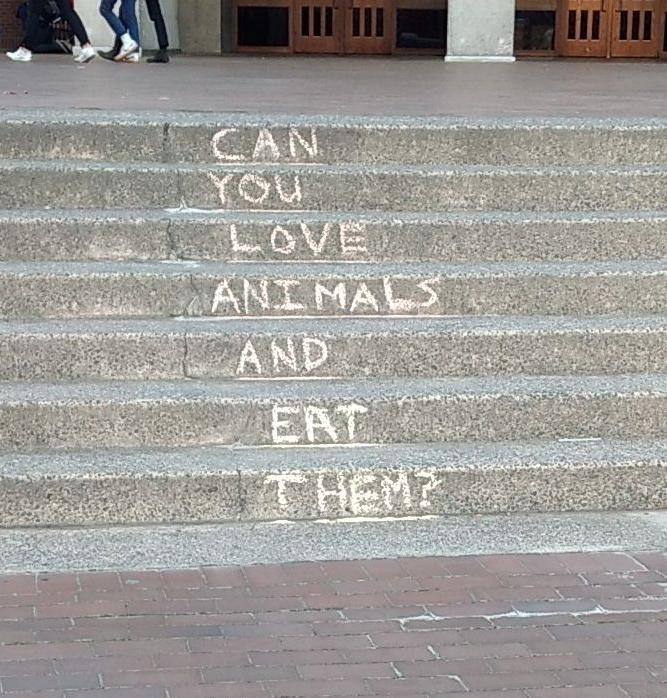 CAN
YOU
LOVE
ANIMALS
AND
EAT
THEM?